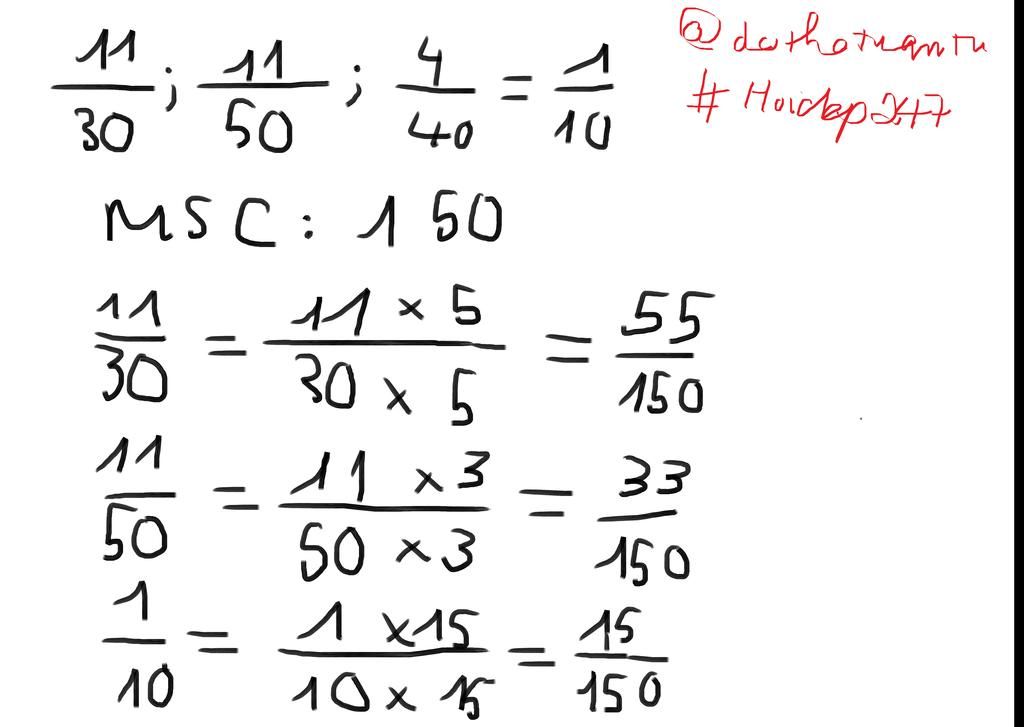 11/30 ; 11/50 ; 4/40 = 1/10
@dathatuantu
# Hoidap247
MSC : 150
11/30 = 11 × 5 / 30 × 5 = 55/150
11/50 = 11 × 3 / 50 × 3 = 33/150
1/10 = 1 × 15 / 10 × 15 = 15/150